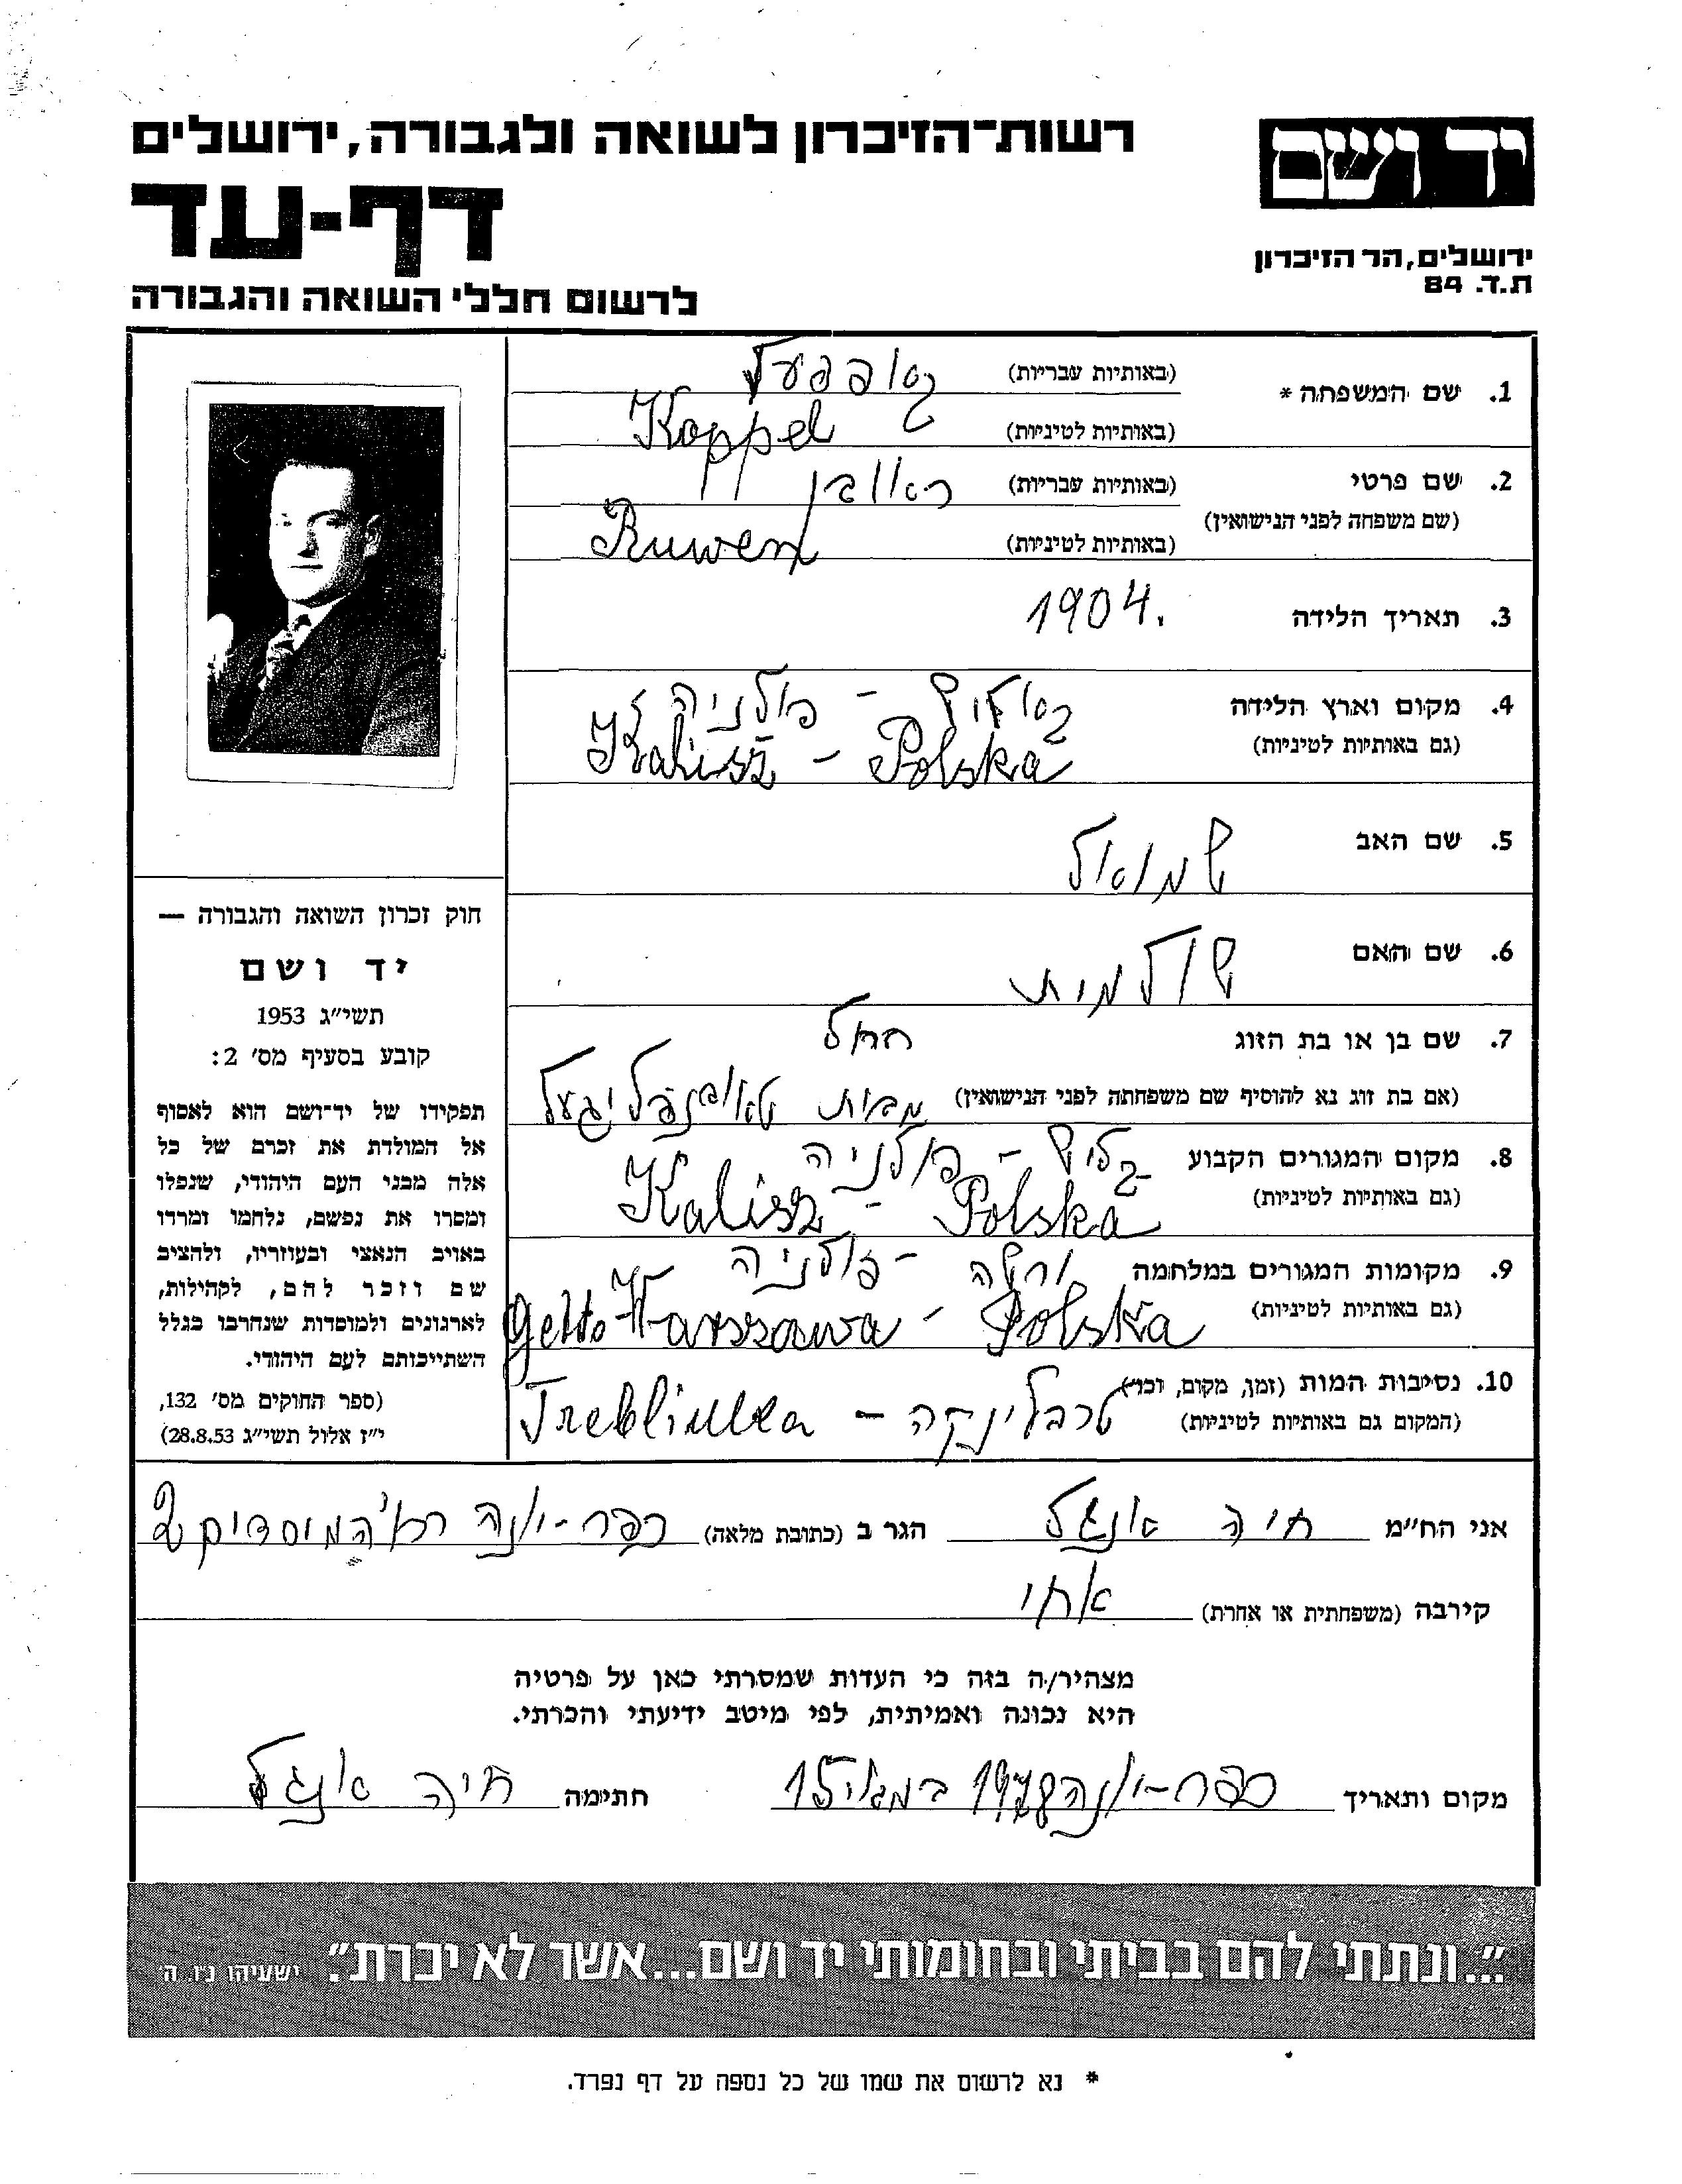 רשות־הזיכרון לשואה ולגבורה, ירושלים
יד ושם
דף-עד
ירושלים, הר הזיכרון
ת.ד. 84
לרשום חללי השואה והגבורה
1. שם המשפחה * (באותיות עבריות) קאפפעל
(באותיות לטיניות) Koppel
2. שם פרטי (באותיות עבריות) ראובן
(שם משפחה לפני הנישואין)
(באותיות לטיניות) Ruwen
3. תאריך הלידה 1904.
4. מקום וארץ הלידה קאליש - פולניה
(גם באותיות לטיניות) Kalisz - Polska
5. שם האב שמואל
6. שם האם שולמית
7. שם בן או בת הזוג רחל
(אם בת זוג נא להוסיף שם משפחתה לפני הנישואין) מבית
8. מקום המגורים הקבוע קליש - פולניה
(גם באותיות לטיניות) Kalisz - Polska
9. מקומות המגורים במלחמה ורשה - פולניה
(גם באותיות לטיניות) getto Warszawa - Polska
10. נסיבות המות (זמן, מקום, וכו') טרבלינקה - Treblinka
(המקום גם באותיות לטיניות)
חוק זכרון השואה והגבורה —
יד ושם
תשי״ג 1953
קובע בסעיף מס׳ 2:
תפקידו של יד־ושם הוא לאסוף
אל המולדת את זכרם של כל
אלה מבני העם היהודי, שנפלו
ומסרו את נפשם, נלחמו ומרדו
באויב הנאצי ובעוזריו, ולהציב
שם וזכר להם, לקהילות,
לארגונים ולמוסדות שנחרבו בגלל
השתייכותם לעם היהודי.
(ספר החוקים מס׳ 132,
י״ז אלול תשי״ג 28.8.53)
אני הח״מ חיה אנגל הגר ב (כתובת מלאה) כפר-יונה רח' המיסדים 2
קירבה (משפחתית או אחרת) אחי
מצהיר/ה בזה כי העדות שמסרתי כאן על פרטיה
היא נכונה ואמיתית, לפי מיטב ידיעתי והכרתי.
מקום ותאריך כפר-יונה 1978 במאי 15 חתימה חיה אנגל
״...ונתתי להם בביתי ובחומותי יד ושם...אשר לא יכרת״. ישעיהו נ״ו ה׳
* נא לרשום את שמו של כל נספה על דף נפרד.